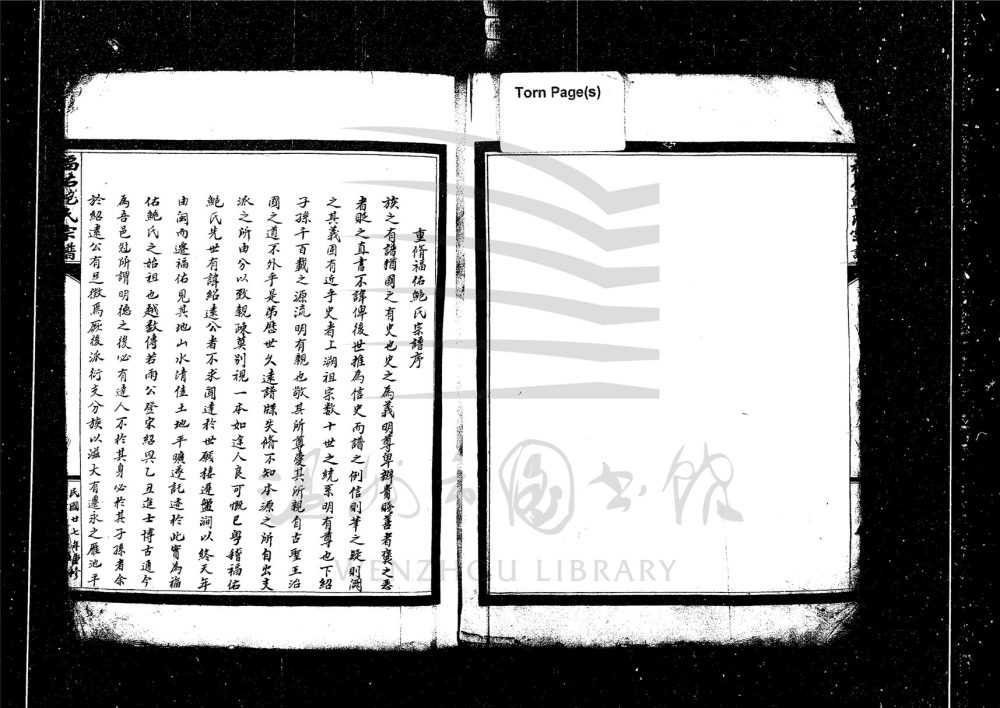 Torn Page(s)
重脩福佑鮑氏宗譜序
族之有譜猶國之有史也史之為義明尊卑辨貴賤善者褒之惡
者貶之真書不諱俾後世推為信史而譜之例信則筆之疑則闕
之其義固有近乎史者上溯祖宗數十世之統系明有尊也下紹
子孫千百載之源流明有親也敬其所尊愛其所親自古聖王治
國之道不外乎是第歷世久遠譜牒失脩不知本源之所自出支
派之所由分以致親疎莫別視一本如途人良可慨已粤稽福佑
鮑氏先世有諱紹遠公者不求聞達於世碩棲邁盤澗以終天年
由閩而遷福佑見其地山水清佳土地平曠遂託迹於此實為福
佑鮑氏之始祖也越數傳若雨公登宋紹興乙丑進士博古通今
為吾邑冠所謂明德之後必有達人不於其身必於其子孫者余
於紹遠公有足徵焉厥後派衍支分族以滋大有遷永之雁池平
福佑鮑氏宗譜
民國廿七年重修
溫州市圖書館
WENZHOU LIBRARY